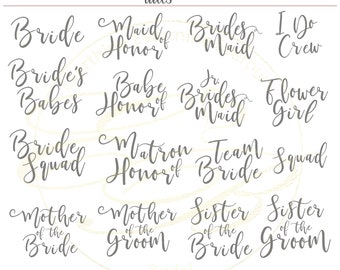 Bride
Maid of Honor
Brides Maid
I Do Crew
Bride's Babes
Babe of Honor
Jr. Brides Maid
Flower Girl
Bride Squad
Matron of Honor
Team Bride
Squad
Mother of the Bride
Mother of the Groom
Sister of the Bride
Sister of the Groom